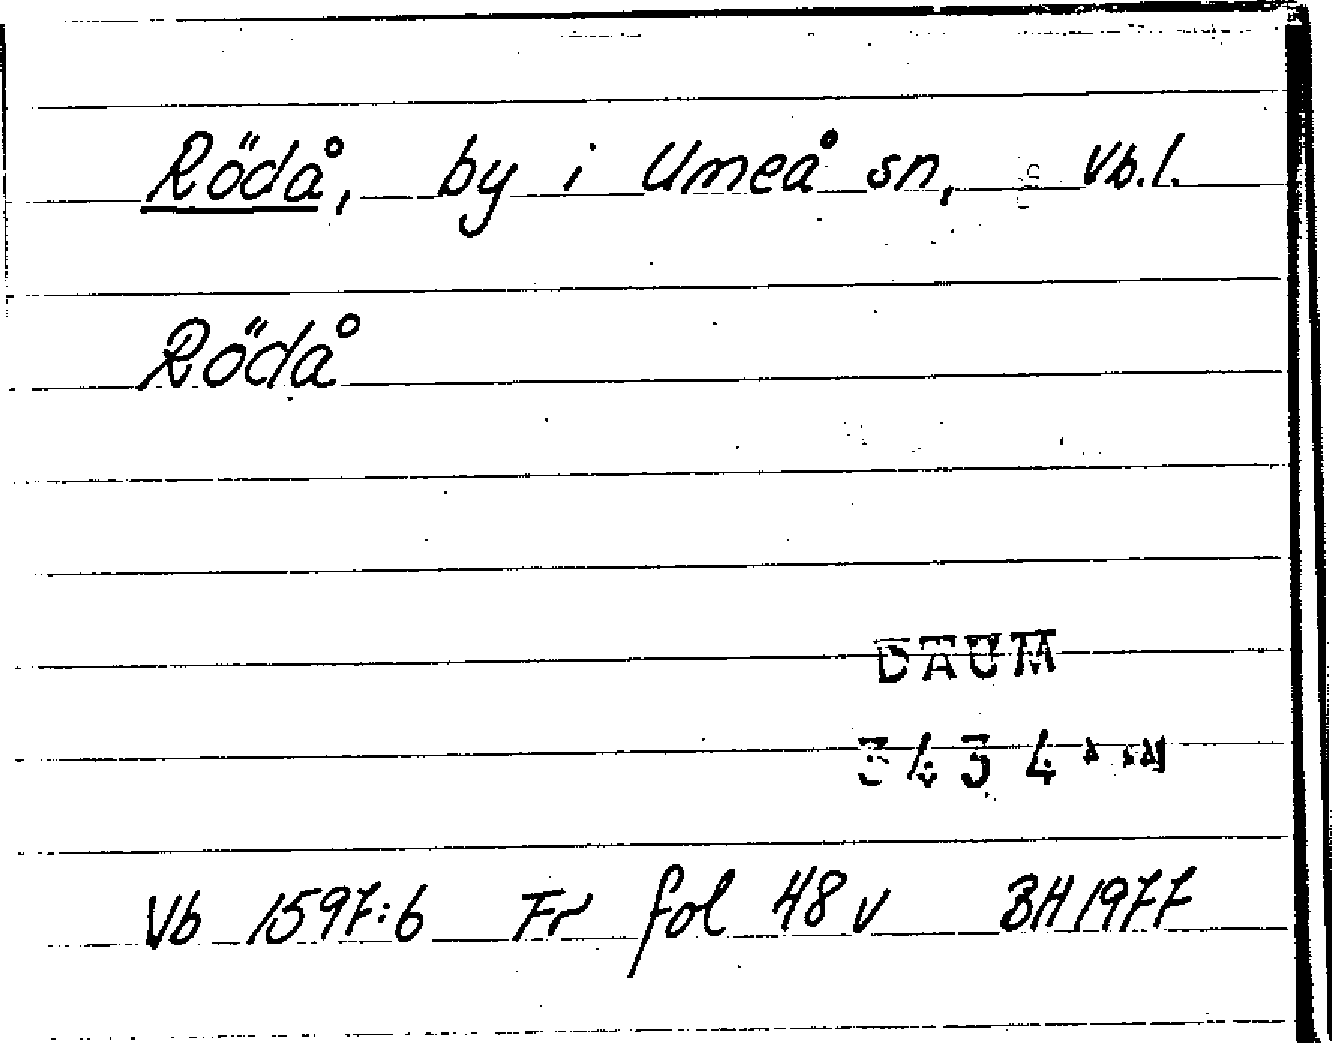 Rödå, by i Umeå sn, Vb.l.
Rödå
DAUM
3434
Vb 1597:6 Fr fol 48 v BH 1977